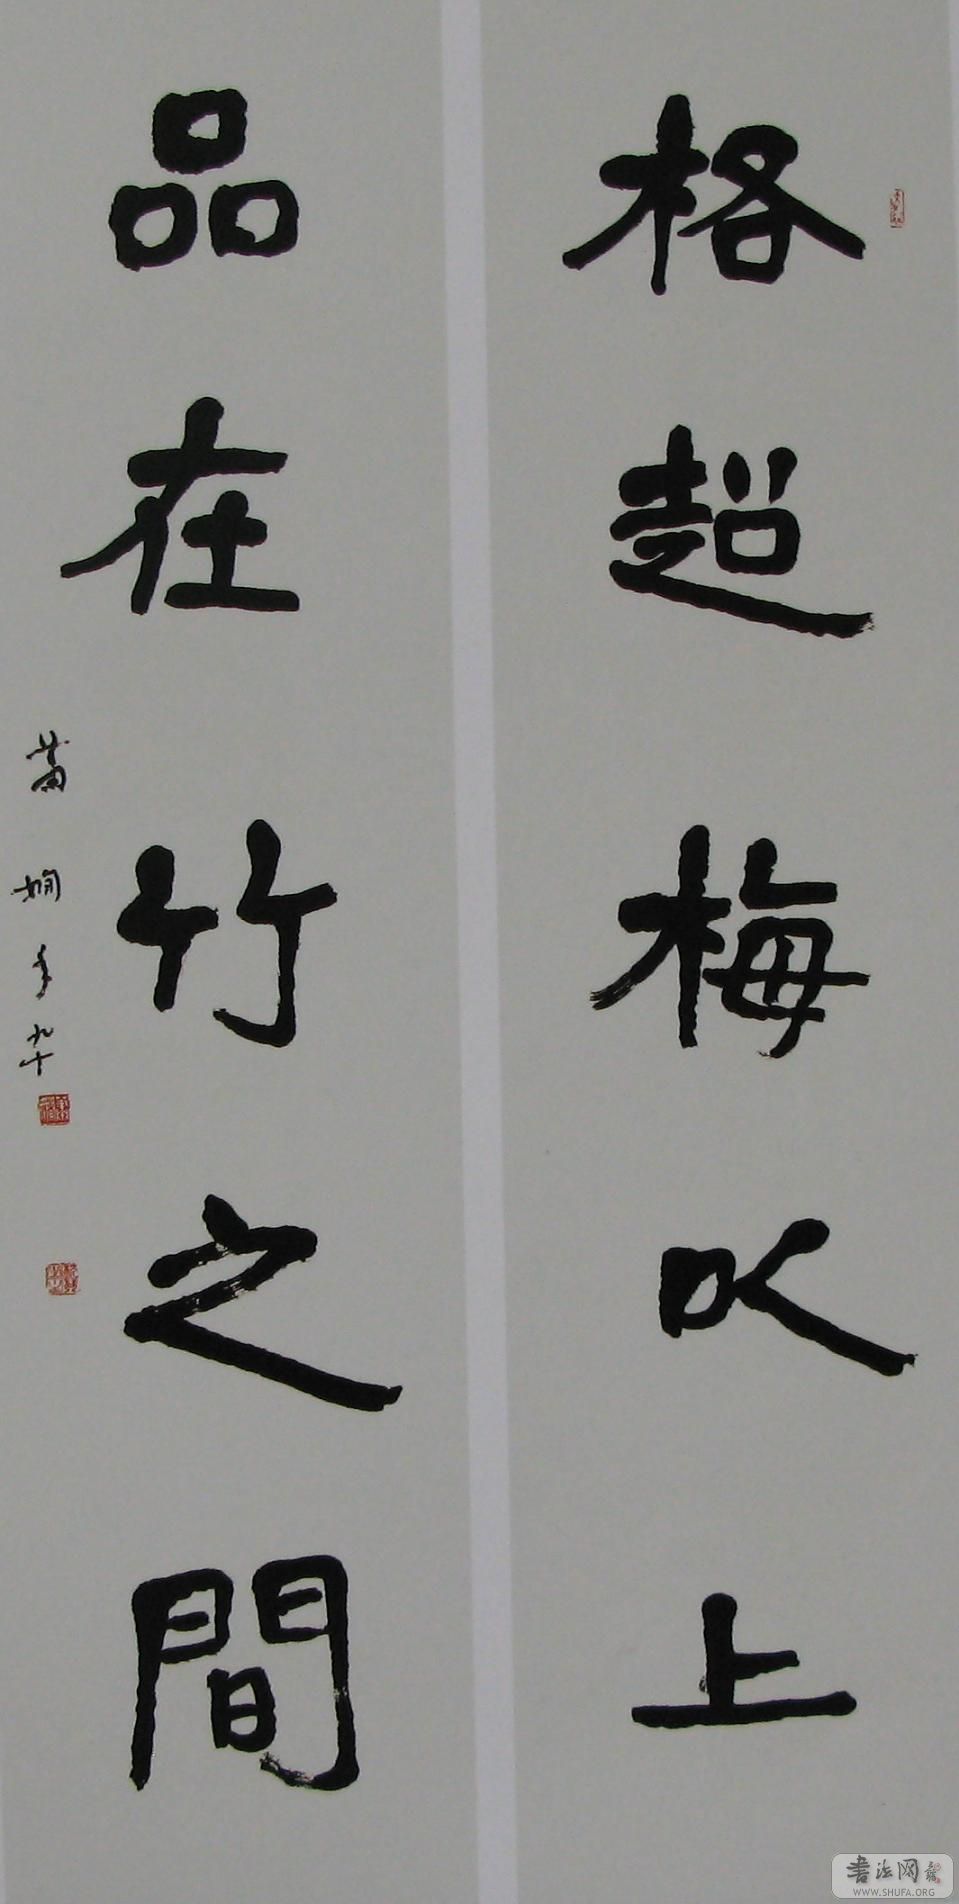 格超梅以上
品在竹之間
蕭嫻年九十
书法网
WWW.SHUFA.ORG